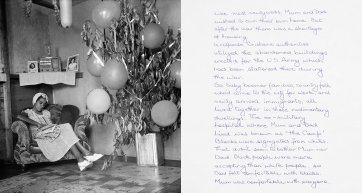 Like most newlyweds, Mum and Dad
wished to own their own home. But
after the war there was a shortage
of housing.
Brisbane authorities
utilised the abandoned buildings
erected for the U.S. Army which
had been stationed there during
the war.
So baby boomer families, country folk
who came to the city for work and
newly arrived immigrants, all
lived together in these rudimentary
dwellings. The ex-military
hospital where Mum and Dad
lived was known as "the Camp".
Blacks were segregated from whites.
That didn't seem to bother Mum nor
Dad. Black people were more
accepting than white people, so
Dad felt comfortable with blacks.
Mum was comfortable with everyone.